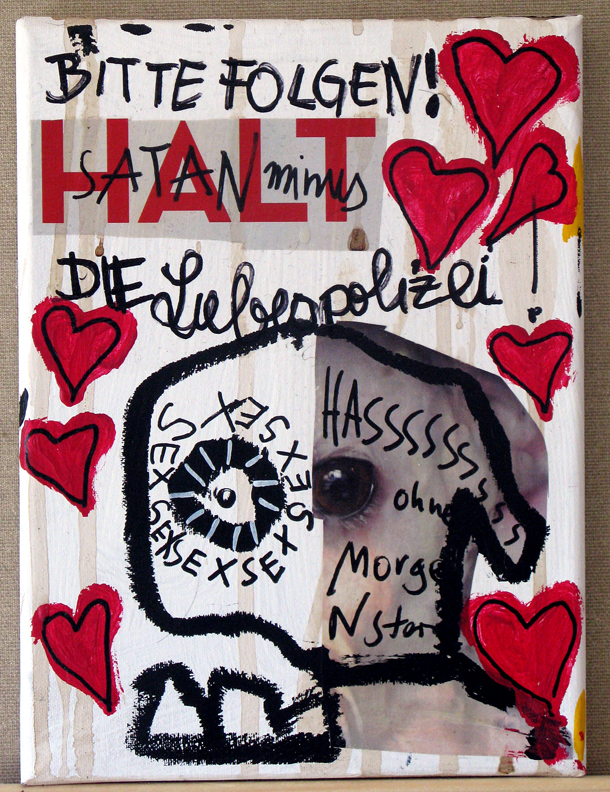 BITTE FOLGEN!
HALT
SATAN minus
DIE Liebespolizei!
SEX SEX SEX SEX SEX SEX SEX
HASSSSSSSSSS
ohne
Morge
Nstar